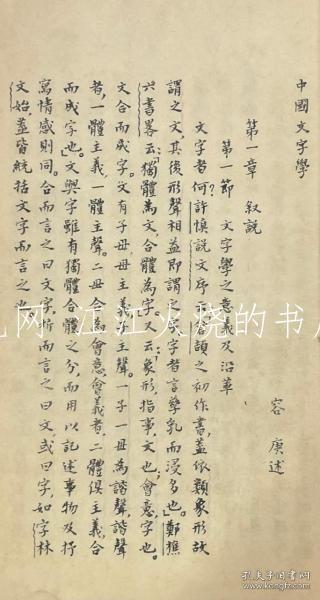 中國文字學
容庚述
第一章 叙說
第一節 文字學之意義及沿革
文字者何?許慎說文序曰:倉頡之初作書,蓋依類象形,故
謂之文,其後形聲相益,即謂之字,字者言孳乳而浸多也。鄭樵
六書畧云:獨體為文,合體為字。又云:象形,指事,文也;會意,字也。
文合而成字。文有子母,母主義,子主聲。一子一母為諧聲,諧聲
者,一體主義,一體主聲。二母合為會意,會意者,二體俱主義,合
而成字也。文與字雖有獨體合體之分,而用以記述事物及抒
寫情感則同。合而言之曰文字,析而言之曰文或曰字,如字林
文始,蓋皆統括文字而言之也。
江江火烧的书店
孔夫子旧书网